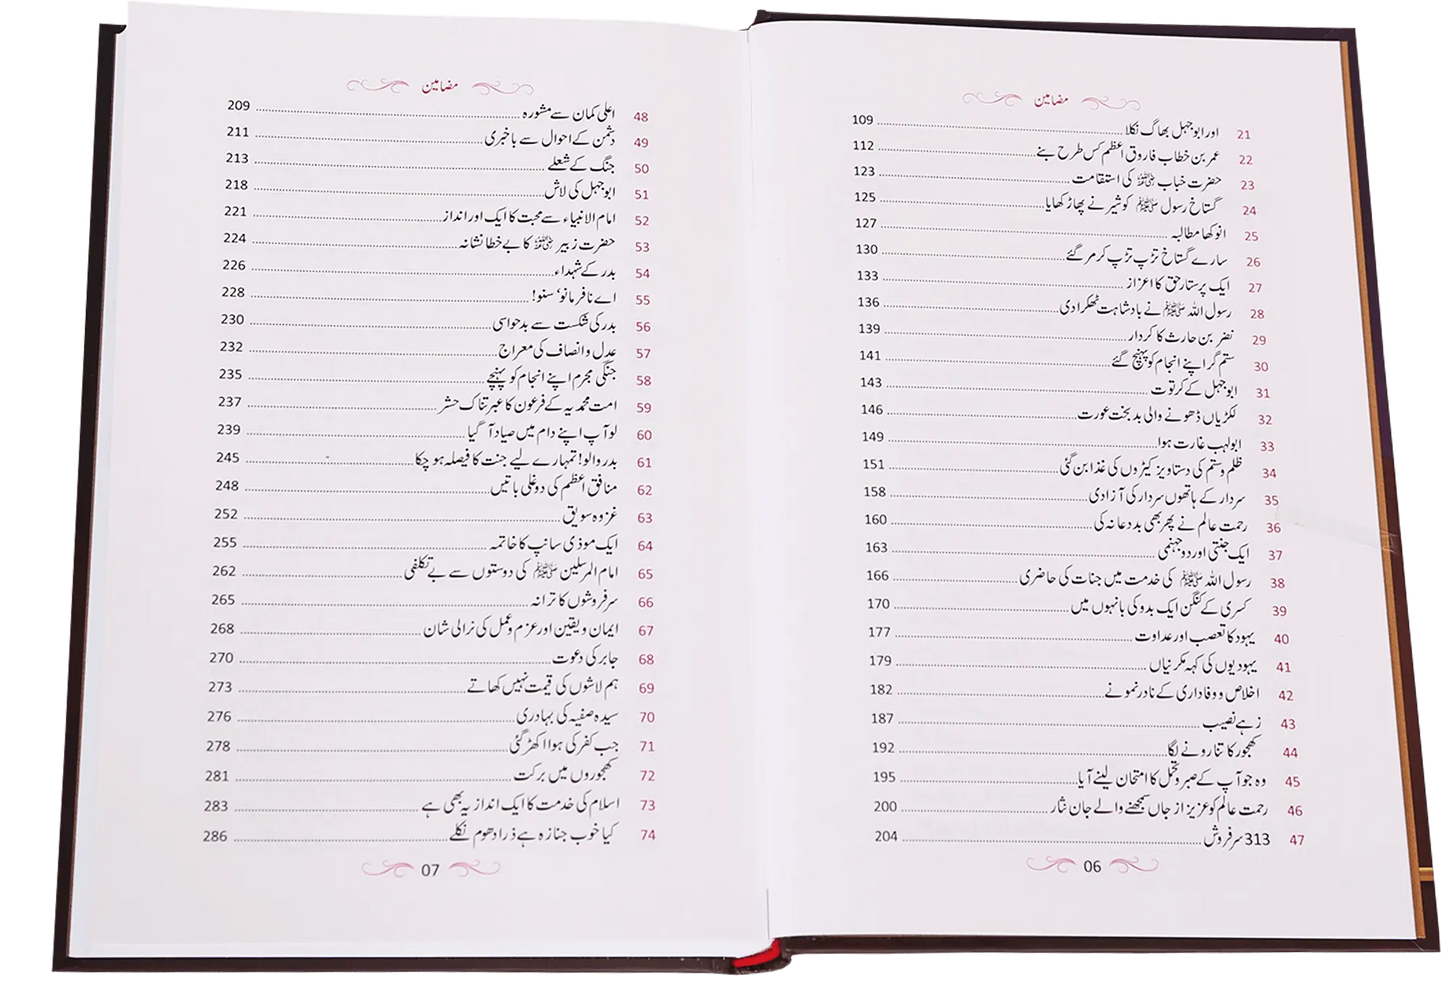 مضامین
21 اور ابوجہل بھاگ نکلا 109
22 عمر بن خطاب فاروق اعظم کس طرح بنے 112
23 حضرت خباب رضی اللہ عنہ کی استقامت 123
24 گستاخ رسول ﷺ کو شیر نے پھاڑ کھایا 125
25 انوکھا مطالبہ 127
26 سارے گستاخ تڑپ تڑپ کر مر گئے 130
27 ایک پرستار حق کا اعزاز 133
28 رسول اللہ ﷺ نے بادشاہت ٹھکرا دی 136
29 نضر بن حارث کا کردار 139
30 ستم گر اپنے انجام کو پہنچ گئے 141
31 ابوجہل کے کرتوت 143
32 لکڑیاں ڈھونے والی بد بخت عورت 146
33 ابولہب غارت ہوا 149
34 ظلم و ستم کی دستاویز کیڑوں کی غذا بن گئی 151
35 سردار کے ہاتھوں سردار کی آزادی 158
36 رحمت عالم نے پھر بھی بددعا نہ کی 160
37 ایک جنتی اور دو جہنمی 163
38 رسول اللہ ﷺ کی خدمت میں جنات کی حاضری 166
39 کسریٰ کے کنگن ایک بدو کی بانہوں میں 170
40 یہود کا تعصب اور عداوت 177
41 یہودیوں کی کہہ مکرنیاں 179
42 اخلاص و وفاداری کے نادر نمونے 182
43 زہے نصیب 187
44 کھجور کا تنا رونے لگا 192
45 وہ جو آپ کے صبر و تحمل کا امتحان لینے آیا 195
46 رحمت عالم کو عزیز از جاں سمجھنے والے جان نثار 200
47 313 سرفروش 204
06
مضامین
48 اعلی کمان سے مشورہ 209
49 دشمن کے احوال سے باخبری 211
50 جنگ کے شعلے 213
51 ابوجہل کی لاش 218
52 امام الانبیاء سے محبت کا ایک اور انداز 221
53 حضرت زبیر رضی اللہ عنہ کا بے خطا نشانہ 224
54 بدر کے شہداء 226
55 اے نافرمانو، سنو! 228
56 بدر کی شکست سے بدحواسی 230
57 عدل و انصاف کی معراج 232
58 جنگی مجرم اپنے انجام کو پہنچے 235
59 امت محمدیہ کے فرعون کا عبرتناک حشر 237
60 لو آپ اپنے دام میں صیاد آ گیا 239
61 بدر والو! تمہارے لیے جنت کا فیصلہ ہو چکا 245
62 منافق اعظم کی دوغلی باتیں 248
63 غزوہ سویق 252
64 ایک موذی سانپ کا خاتمہ 255
65 امام المرسلین ﷺ کی دوستوں سے بے تکلفی 262
66 سرفروشوں کا ترانہ 265
67 ایمان و یقین اور عزم و عمل کی نرالی شان 268
68 جابر کی دعوت 270
69 ہم لاشوں کی قیمت نہیں کھاتے 273
70 سیدہ صفیہ کی بہادری 276
71 جب کفر کی ہوا اکھڑ گئی 278
72 کھجوروں میں برکت 281
73 اسلام کی خدمت کا ایک انداز یہ بھی ہے 283
74 کیا خوب جنازہ ہے ذرا دھوم نکلے 286
07